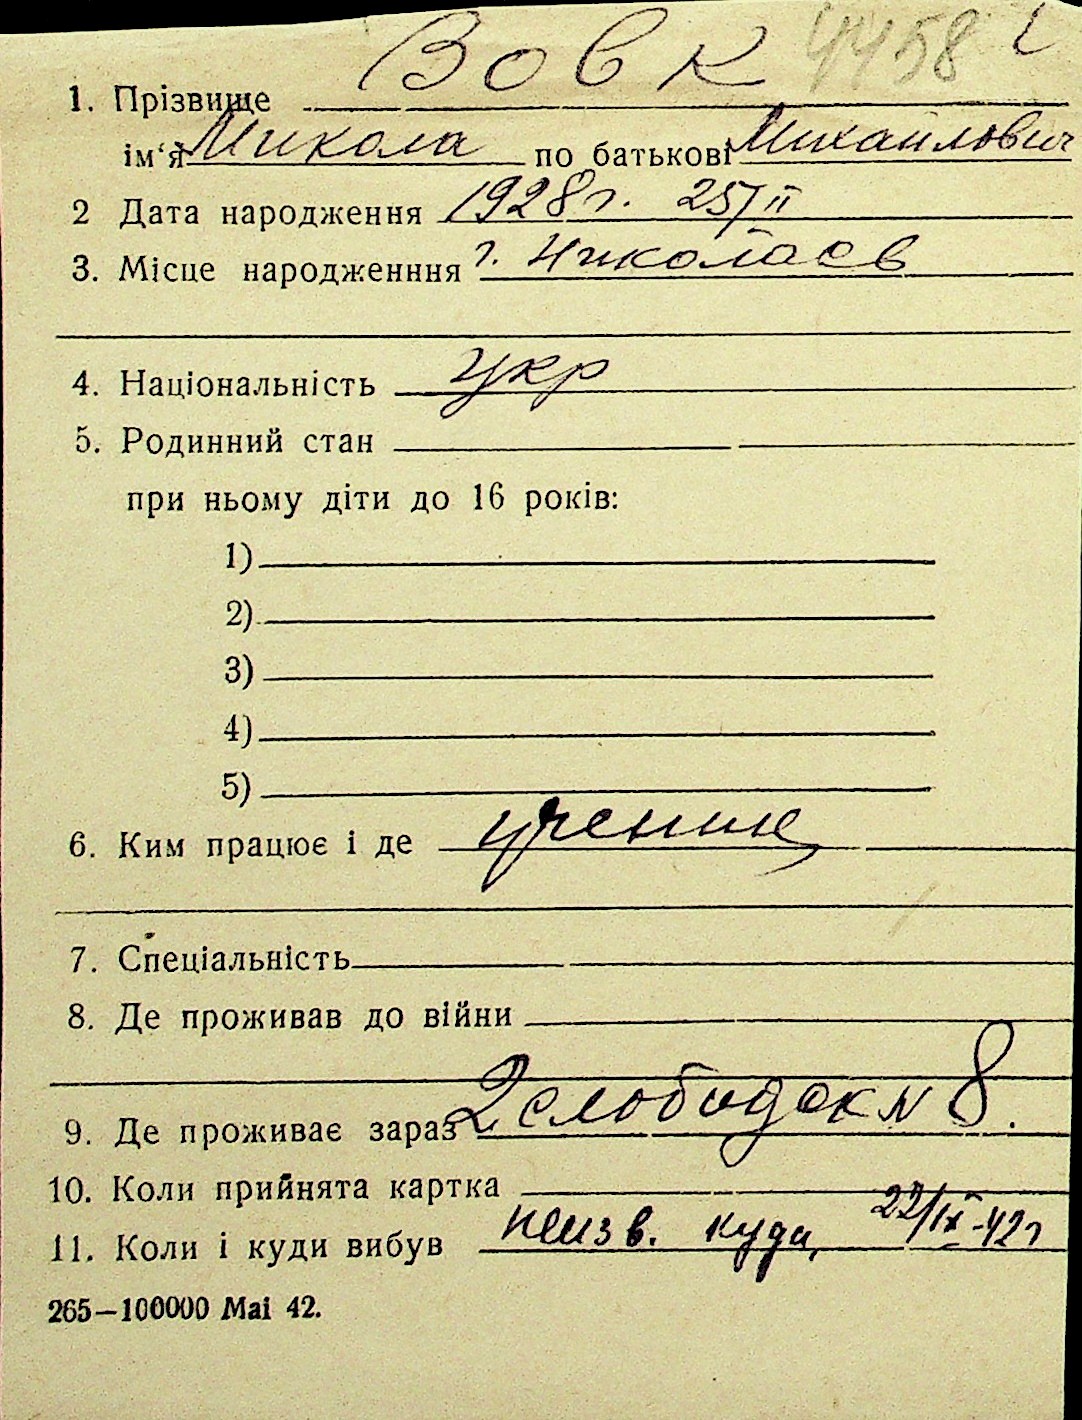 4458
1. Прізвище Вовк
ім'я Микола по батькові Михайлович
2 Дата народження 1928 г. 25/II
3. Місце народженння г. Николаев
4. Національність укр
5. Родинний стан
при ньому діти до 16 років:
1)
2)
3)
4)
5)
6. Ким працює і де ученик
7. Спеціальність
8. Де проживав до війни
9. Де проживає зараз 2 слободск N 8.
10. Коли прийнята картка
11. Коли і куди вибув неизв. куда 22/IX-42г
265—100000 Маі 42.